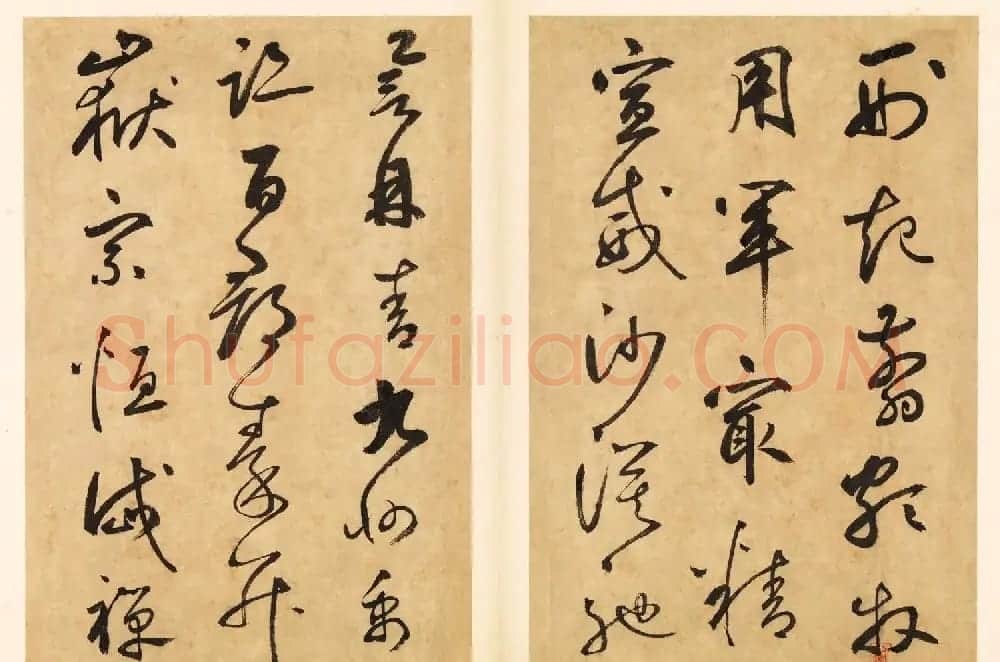 刑起翦頗牧
用軍最精
宣威沙漠馳
譽丹青九州禹
跡百郡秦并
嶽宗恒岱禪
Shufaziliao.COM